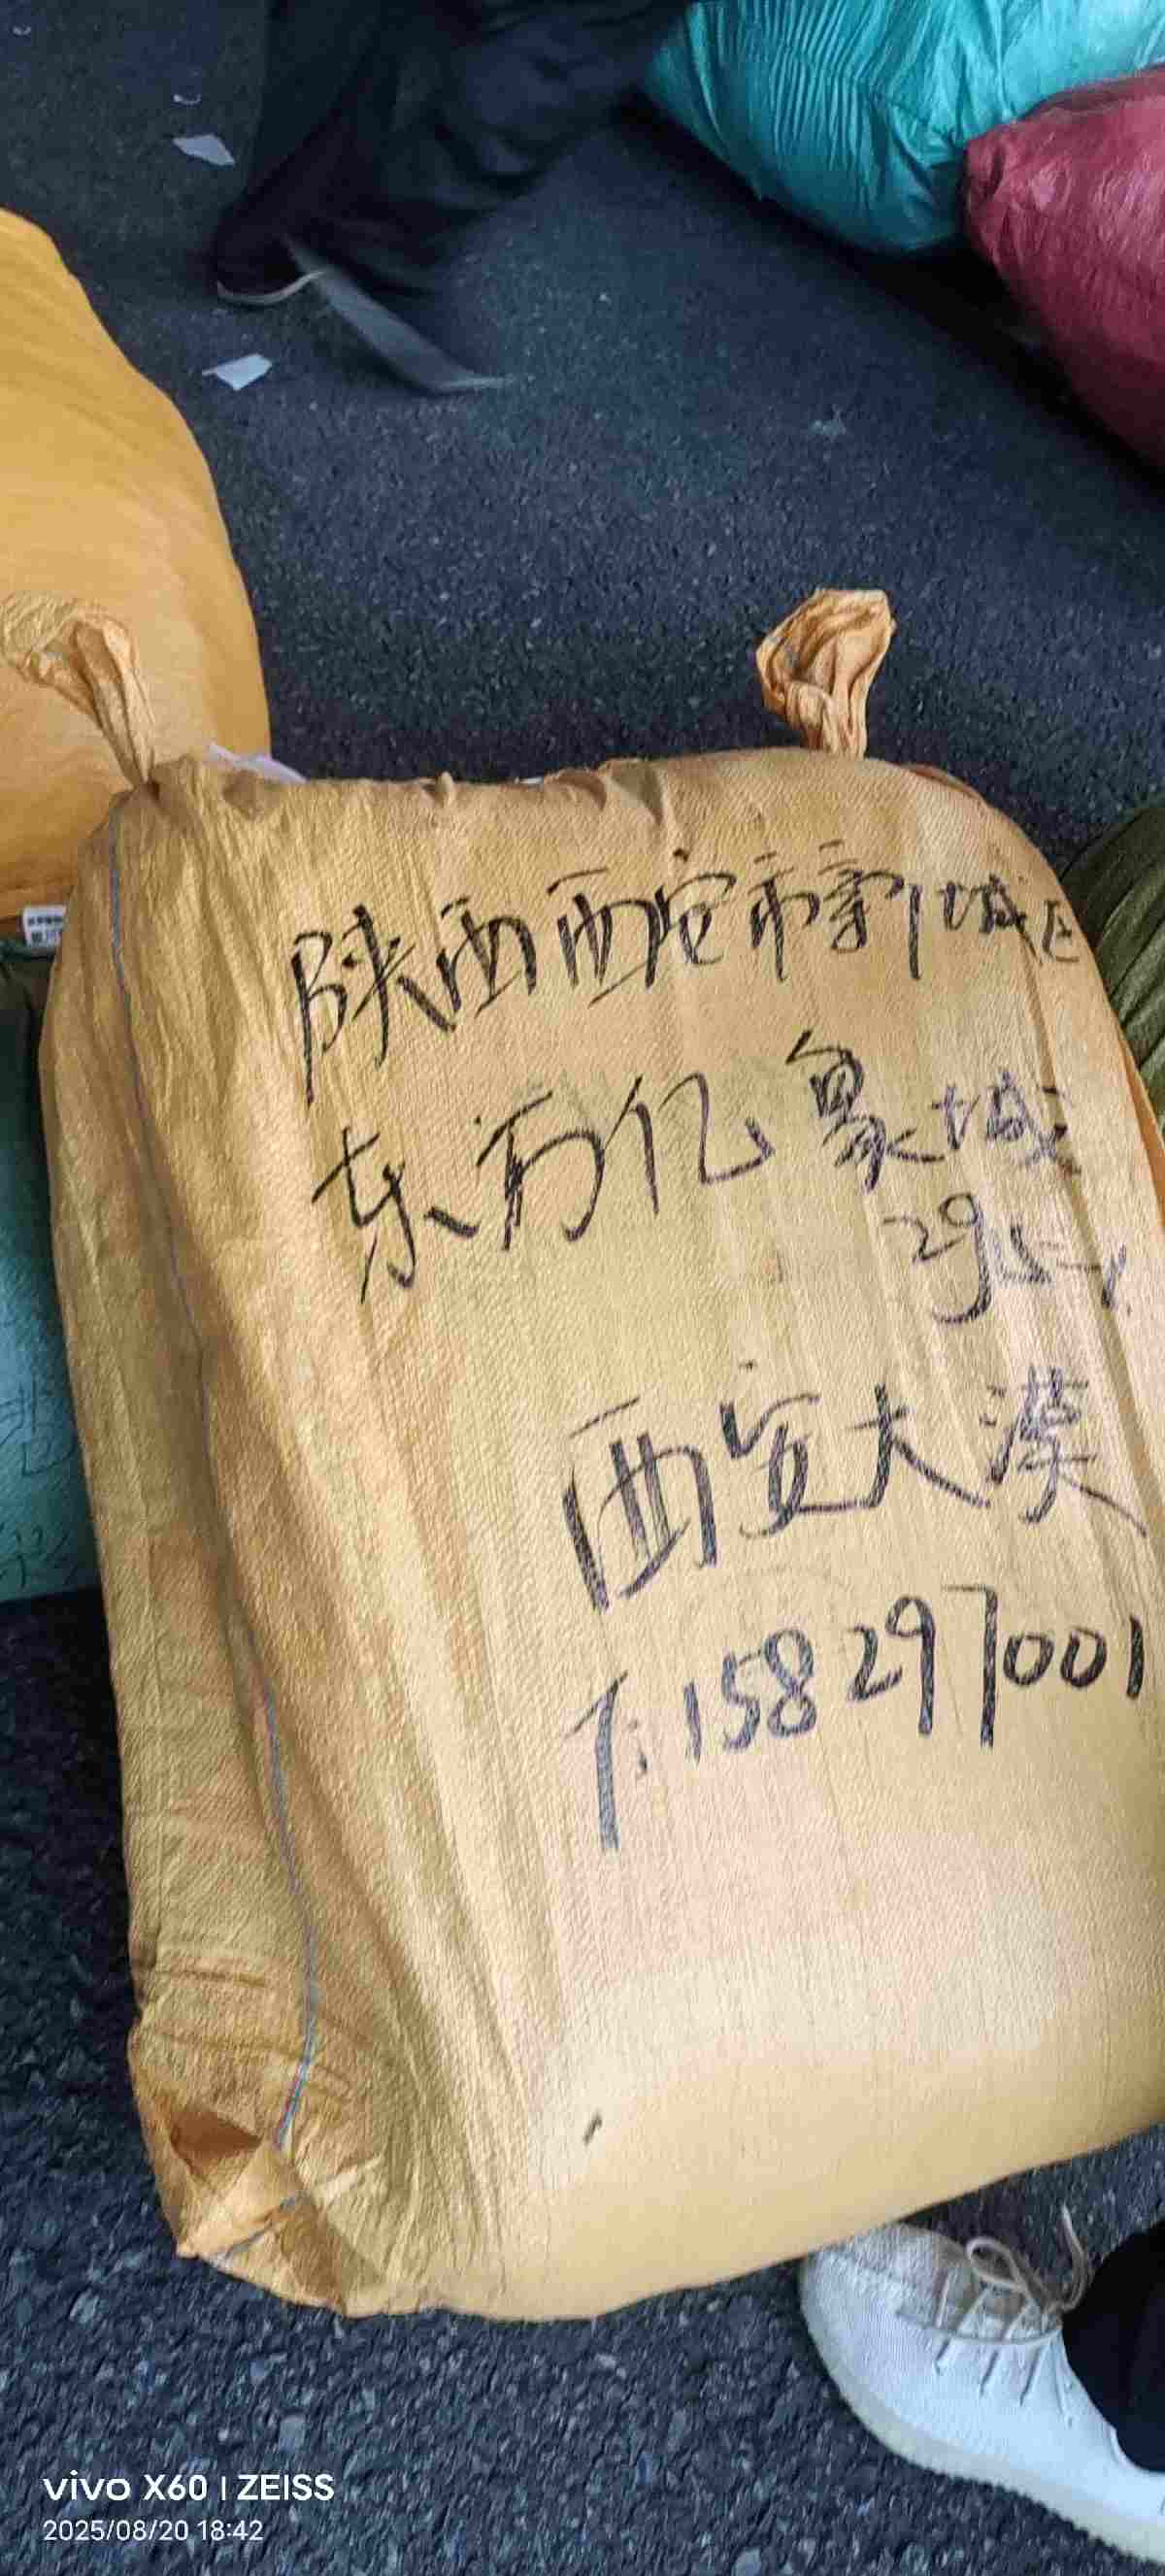 陕西西安市新城区
东万亿象城
29
西安大漠
T:158297001
vivo X60 | ZEISS
2025/08/20 18:42